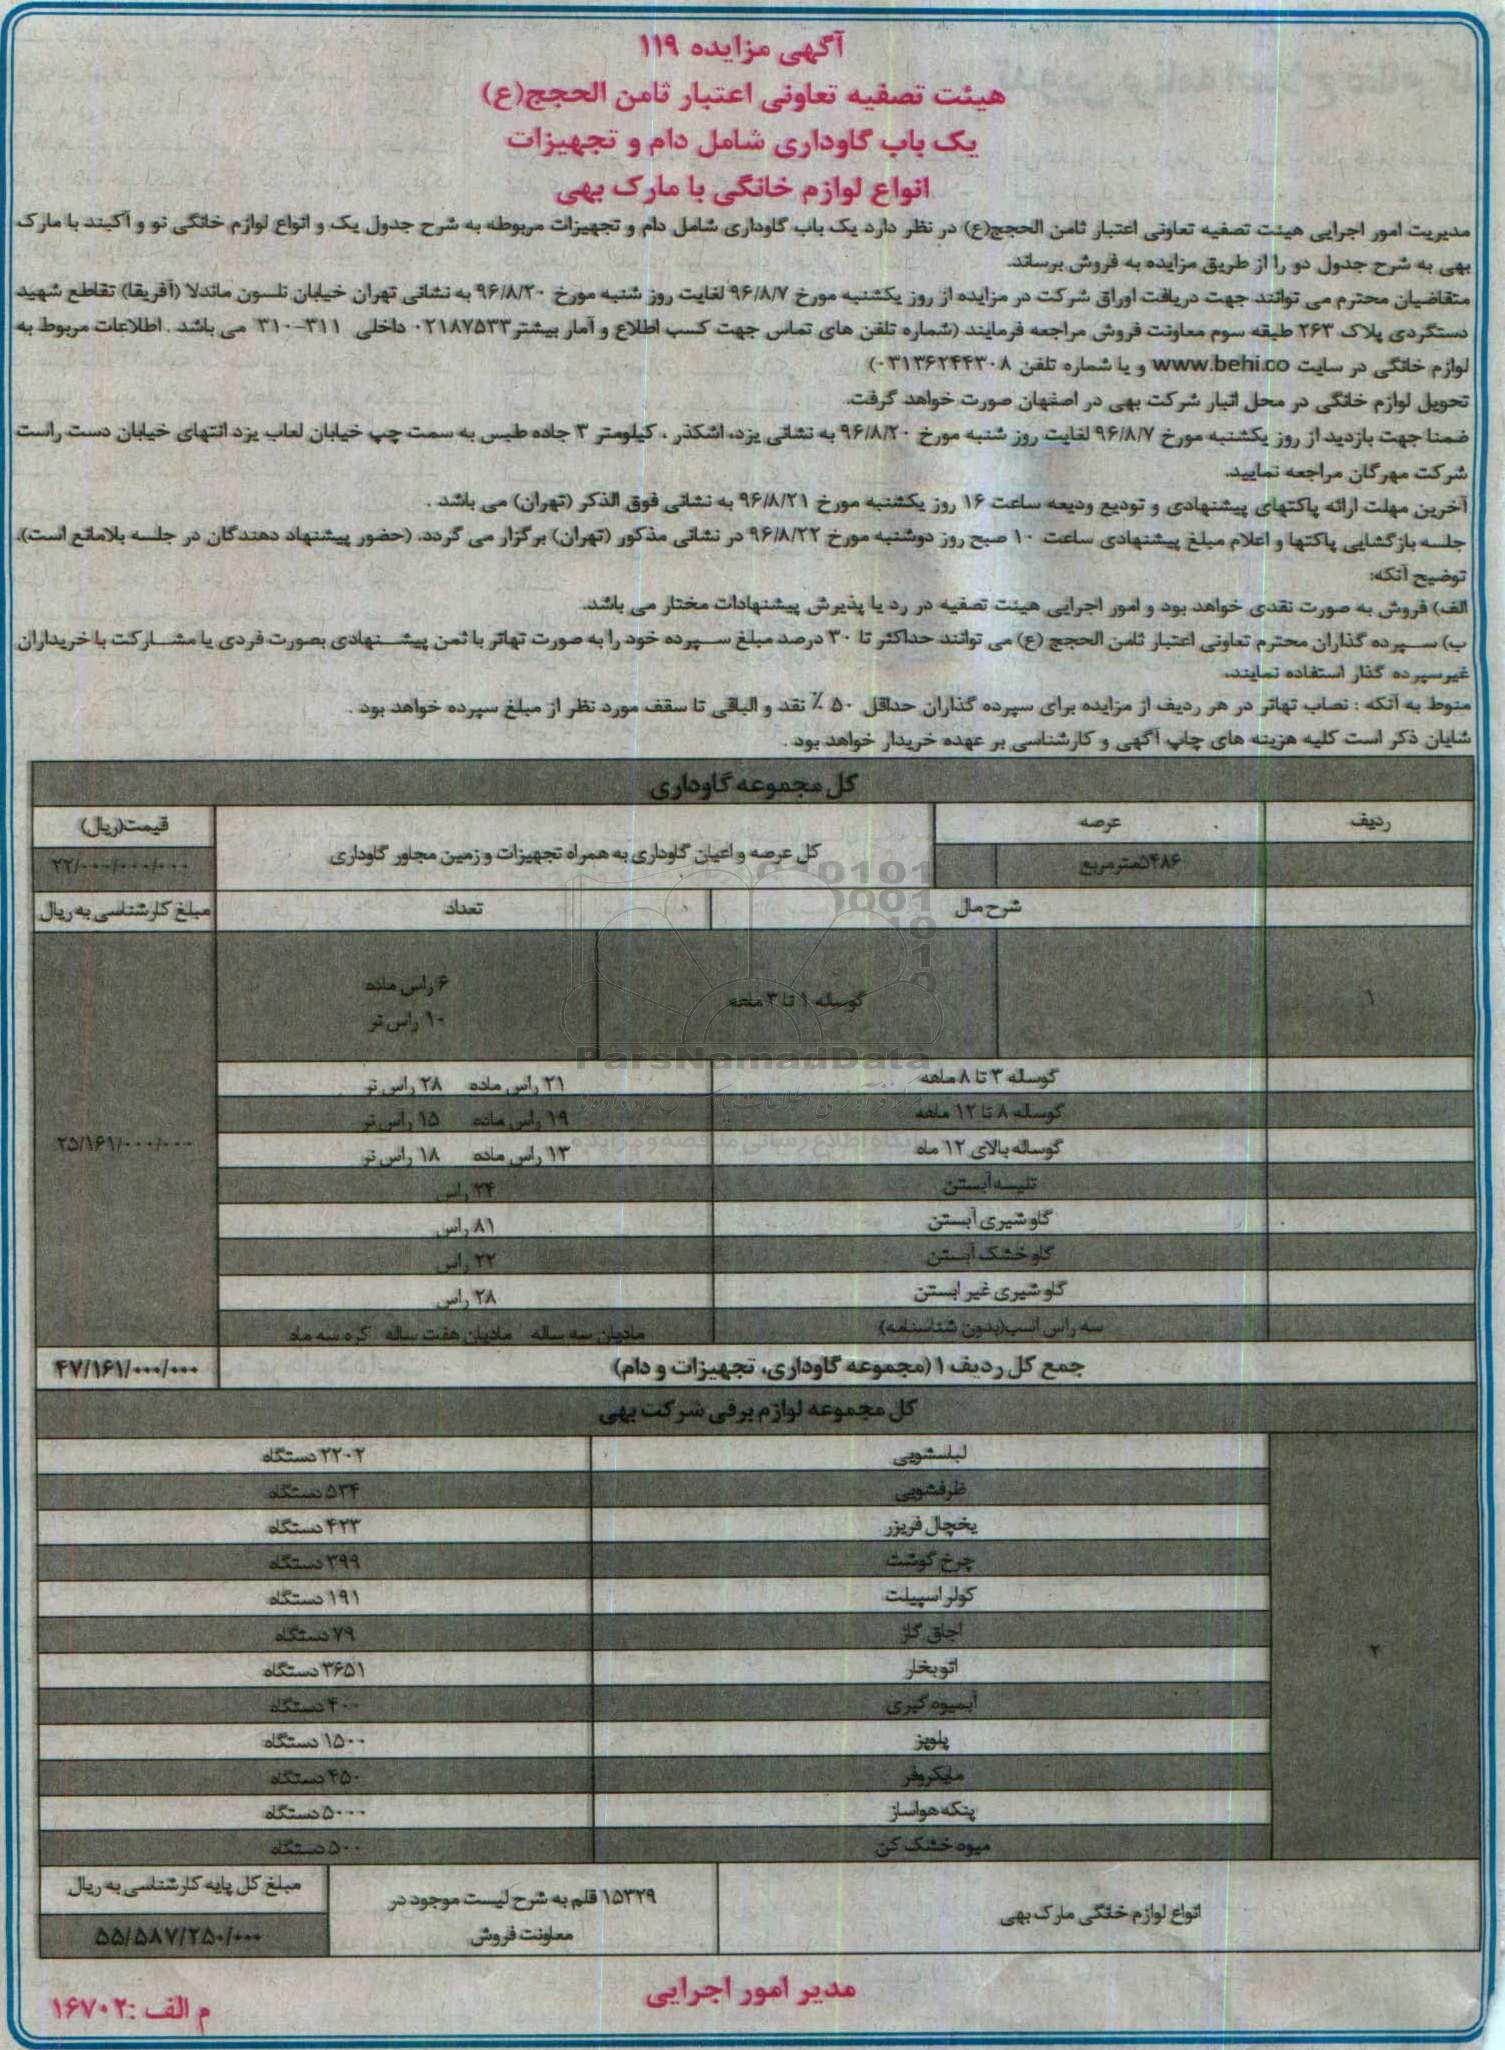 آگهی مزایده ۱۱۹
هیئت تصفیه تعاونی اعتبار ثامن الحجج(ع)
یک باب گاوداری شامل دام و تجهیزات
انواع لوازم خانگی با مارک بهی
مدیریت امور اجرایی هیئت تصفیه تعاونی اعتبار ثامن الحجج(ع) در نظر دارد یک باب گاوداری شامل دام و تجهیزات مربوطه به شرح جدول یک و انواع لوازم خانگی نو و آکبند با مارک
بهی به شرح جدول دو را از طریق مزایده به فروش برساند.
متقاضیان محترم می توانند جهت دریافت اوراق شرکت در مزایده از روز یکشنبه مورخ ۹۶/۸/۷ لغایت روز شنبه مورخ ۹۶/۸/۲۰ به نشانی تهران خیابان نلسون ماندلا (آفریقا) تقاطع شهید
دستگردی پلاک ۲۶۳ طبقه سوم معاونت فروش مراجعه فرمایند (شماره تلفن های تماس جهت کسب اطلاع و آمار بیشتر ۰۲۱۸۷۵۳۳ داخلی ۳۱۱-۳۱۰ می باشد . اطلاعات مربوط به
لوازم خانگی در سایت www.behi.co و یا شماره تلفن ۰۳۱۳۶۲۴۴۳۰۸)
تحویل لوازم خانگی در محل انبار شرکت بهی در اصفهان صورت خواهد گرفت.
ضمنا جهت بازدید از روز یکشنبه مورخ ۹۶/۸/۷ لغایت روز شنبه مورخ ۹۶/۸/۲۰ به نشانی یزد، اشکذر ، کیلومتر ۳ جاده طبس به سمت چپ خیابان لعاب یزد انتهای خیابان دست راست
شرکت مهرگان مراجعه نمایید.
آخرین مهلت ارائه پاکتهای پیشنهادی و تودیع ودیعه ساعت ۱۶ روز یکشنبه مورخ ۹۶/۸/۲۱ به نشانی فوق الذکر (تهران) می باشد .
جلسه بازگشایی پاکتها و اعلام مبلغ پیشنهادی ساعت ۱۰ صبح روز دوشنبه مورخ ۹۶/۸/۲۲ در نشانی مذکور (تهران) برگزار می گردد. (حضور پیشنهاد دهندگان در جلسه بلامانع است).
توضیح آنکه:
الف) فروش به صورت نقدی خواهد بود و امور اجرایی هیئت تصفیه در رد یا پذیرش پیشنهادات مختار می باشد.
ب) سپرده گذاران محترم تعاونی اعتبار ثامن الحجج (ع) می توانند حداکثر تا ۳۰ درصد مبلغ سپرده خود را به صورت تهاتر با ثمن پیشنهادی بصورت فردی یا مشارکت با خریداران
غیرسپرده گذار استفاده نمایند.
منوط به آنکه : نصاب تهاتر در هر ردیف از مزایده برای سپرده گذاران حداقل ۵۰ ٪ نقد و الباقی تا سقف مورد نظر از مبلغ سپرده خواهد بود .
شایان ذکر است کلیه هزینه های چاپ آگهی و کارشناسی بر عهده خریدار خواهد بود .
کل مجموعه گاوداری
ردیف عرصه کل عرصه و اعیان گاوداری به همراه تجهیزات و زمین مجاور گاوداری قیمت(ریال)
۵۴۸۶مترمربع ۲۲/۰۰۰/۰۰۰/۰۰۰
شرح مال تعداد مبلغ کارشناسی به ریال
۱ گوساله ۱ تا ۳ ماهه ۶ راس ماده
۱۰ راس نر
گوساله ۳ تا ۸ ماهه ۲۱ راس ماده ۲۸ راس نر
گوساله ۸ تا ۱۲ ماهه ۱۹ راس ماده ۱۵ راس نر
۲۵/۱۶۱/۰۰۰/۰۰۰
گوساله بالای ۱۲ ماه ۱۳ راس ماده ۱۸ راس نر
تلیسه آبستن ۲۴ راس
گاو شیری آبستن ۸۱ راس
گاو خشک آبستن ۲۲ راس
گاو شیری غیر ابستن ۲۸ راس
سه راس اسب(بدون شناسنامه) مادیان سه ساله مادیان هفت ساله کره سه ماه
جمع کل ردیف ۱ (مجموعه گاوداری، تجهیزات و دام) ۴۷/۱۶۱/۰۰۰/۰۰۰
کل مجموعه لوازم برقی شرکت بهی
لباسشویی ۲۲۰۲ دستگاه
ظرفشویی ۵۳۴ دستگاه
یخچال فریزر ۴۲۳ دستگاه
چرخ گوشت ۳۹۹ دستگاه
کولر اسپیلت ۱۹۱ دستگاه
اجاق گاز ۷۹ دستگاه
۲
اتو بخار ۳۶۵۱ دستگاه
آبمیوه گیری ۴۰۰ دستگاه
پلوپز ۱۵۰۰ دستگاه
مایکروفر ۴۵۰ دستگاه
پنکه هواساز ۵۰۰۰ دستگاه
میوه خشک کن ۵۰۰ دستگاه
انواع لوازم خانگی مارک بهی ۱۵۳۲۹ قلم به شرح لیست موجود در معاونت فروش مبلغ کل پایه کارشناسی به ریال
۵۵/۵۸۷/۲۵۰/۰۰۰
مدیر امور اجرایی
م الف : ۱۶۷۰۲
ParsNamadData